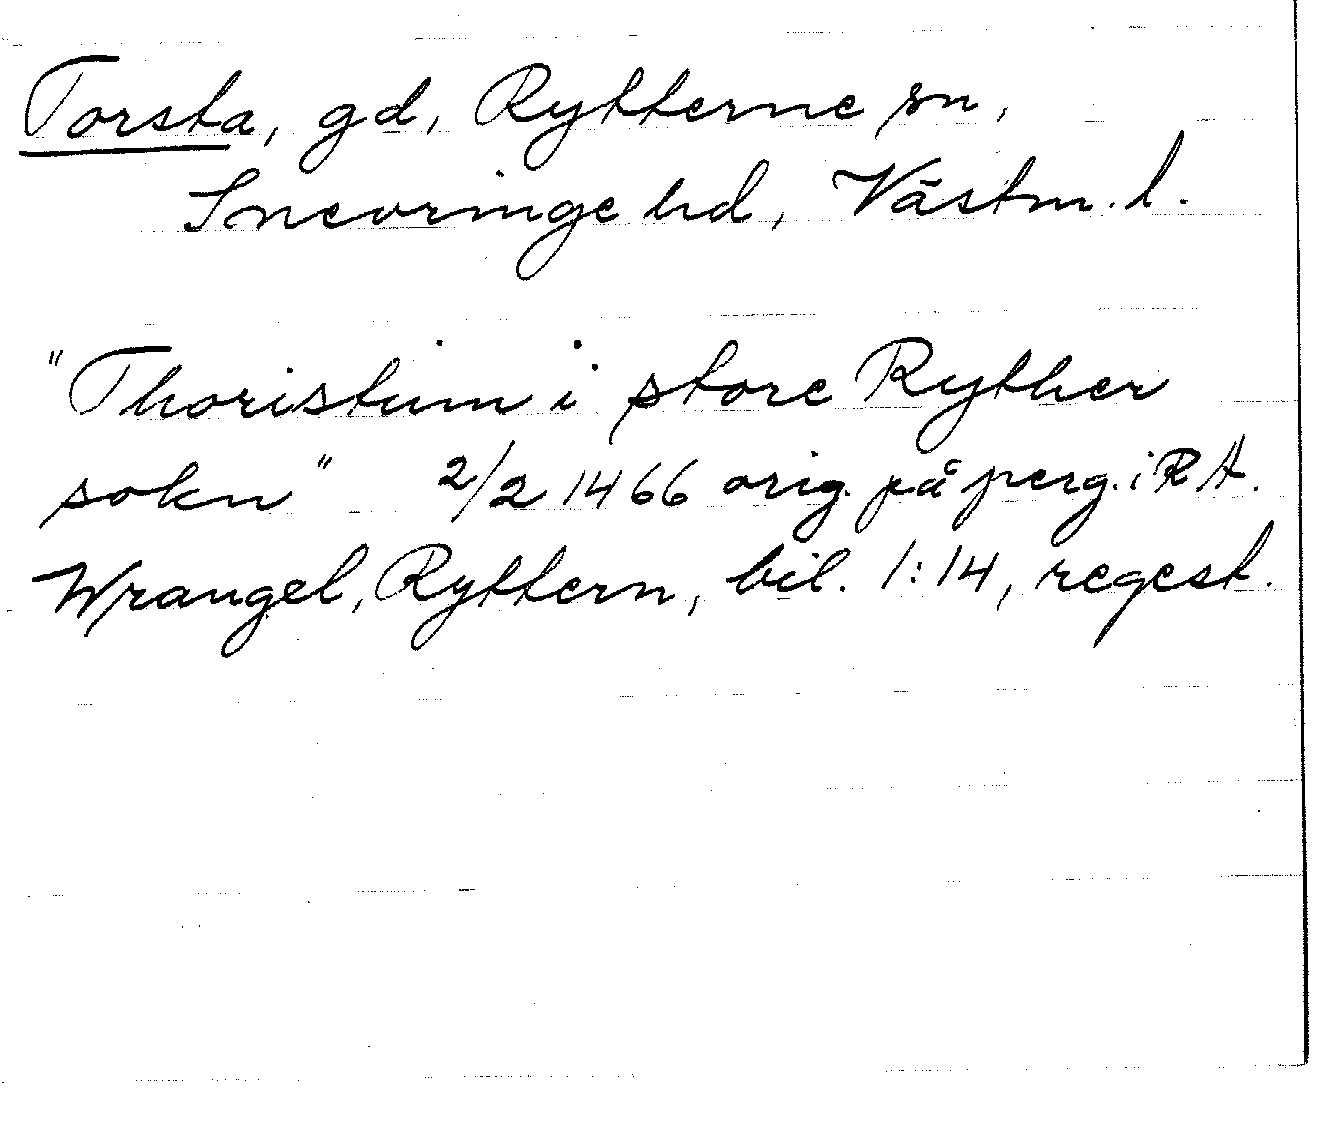 Torsta, gd, Rytterne sn,
Snevringe hd, Västm. l.
"Thoristum i store Ryther
sokn" 2/2 1466 orig. på perg. i RA.
Wrangel, Ryttern, bil. 1:14, regest.